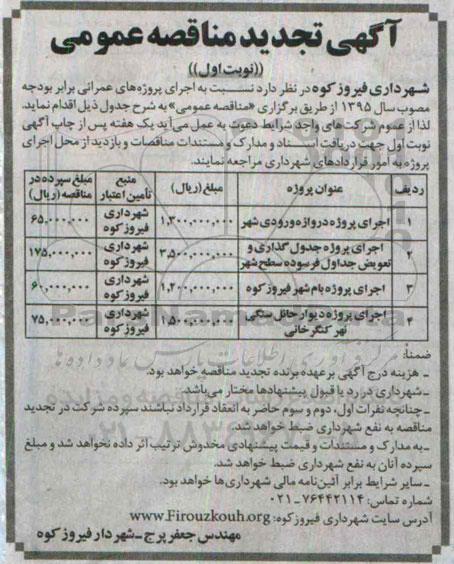 آگهی تجدید مناقصه عمومی
((نوبت اول))
شهرداری فیروزکوه در نظر دارد نسبت به اجرای پروژه‌های عمرانی برابر بودجه
مصوب سال ۱۳۹۵ از طریق برگزاری «مناقصه عمومی» به شرح جدول ذیل اقدام نماید.
لذا از عموم شرکت های واجد شرایط دعوت به عمل می‌آید یک هفته پس از چاپ آگهی
نوبت اول جهت دریافت اسناد و مدارک و مستندات مناقصات و بازدید از محل اجرای
پروژه به امور قراردادهای شهرداری مراجعه نمایند.
ردیف عنوان پروژه مبلغ (ریال) منبع تأمین اعتبار مبلغ سپرده در مناقصه (ریال)
۱ اجرای پروژه دروازه ورودی شهر ۱,۳۰۰,۰۰۰,۰۰۰ شهرداری فیروزکوه ۶۵,۰۰۰,۰۰۰
۲ اجرای پروژه جدول گذاری و تعویض جداول فرسوده سطح شهر ۳,۵۰۰,۰۰۰,۰۰۰ شهرداری فیروزکوه ۱۷۵,۰۰۰,۰۰۰
۳ اجرای پروژه بام شهر فیروزکوه ۱,۲۰۰,۰۰۰,۰۰۰ شهرداری فیروزکوه ۶۰,۰۰۰,۰۰۰
۴ اجرای پروژه دیوار حائل سنگی نهر کنگرخانی ۱,۵۰۰,۰۰۰,۰۰۰ شهرداری فیروزکوه ۷۵,۰۰۰,۰۰۰
ضمناً:
ـ هزینه درج آگهی بر عهده برنده تجدید مناقصه خواهد بود.
ـ شهرداری در رد یا قبول پیشنهادها مختار می‌باشد.
ـ چنانچه نفرات اول، دوم و سوم حاضر به انعقاد قرارداد نباشند سپرده شرکت در تجدید
مناقصه به نفع شهرداری ضبط خواهد شد.
ـ به مدارک و مستندات و قیمت پیشنهادی مخدوش ترتیب اثر داده نخواهد شد و مبلغ
سپرده آنان به نفع شهرداری ضبط خواهد شد.
ـ سایر شرایط برابر آئین‌نامه مالی شهرداری‌ها خواهد بود.
شماره تماس: ۷۶۴۴۲۱۱۴-۰۲۱
آدرس سایت شهرداری فیروزکوه: www.Firouzkouh.org
مهندس جعفر پرج ـ شهردار فیروزکوه